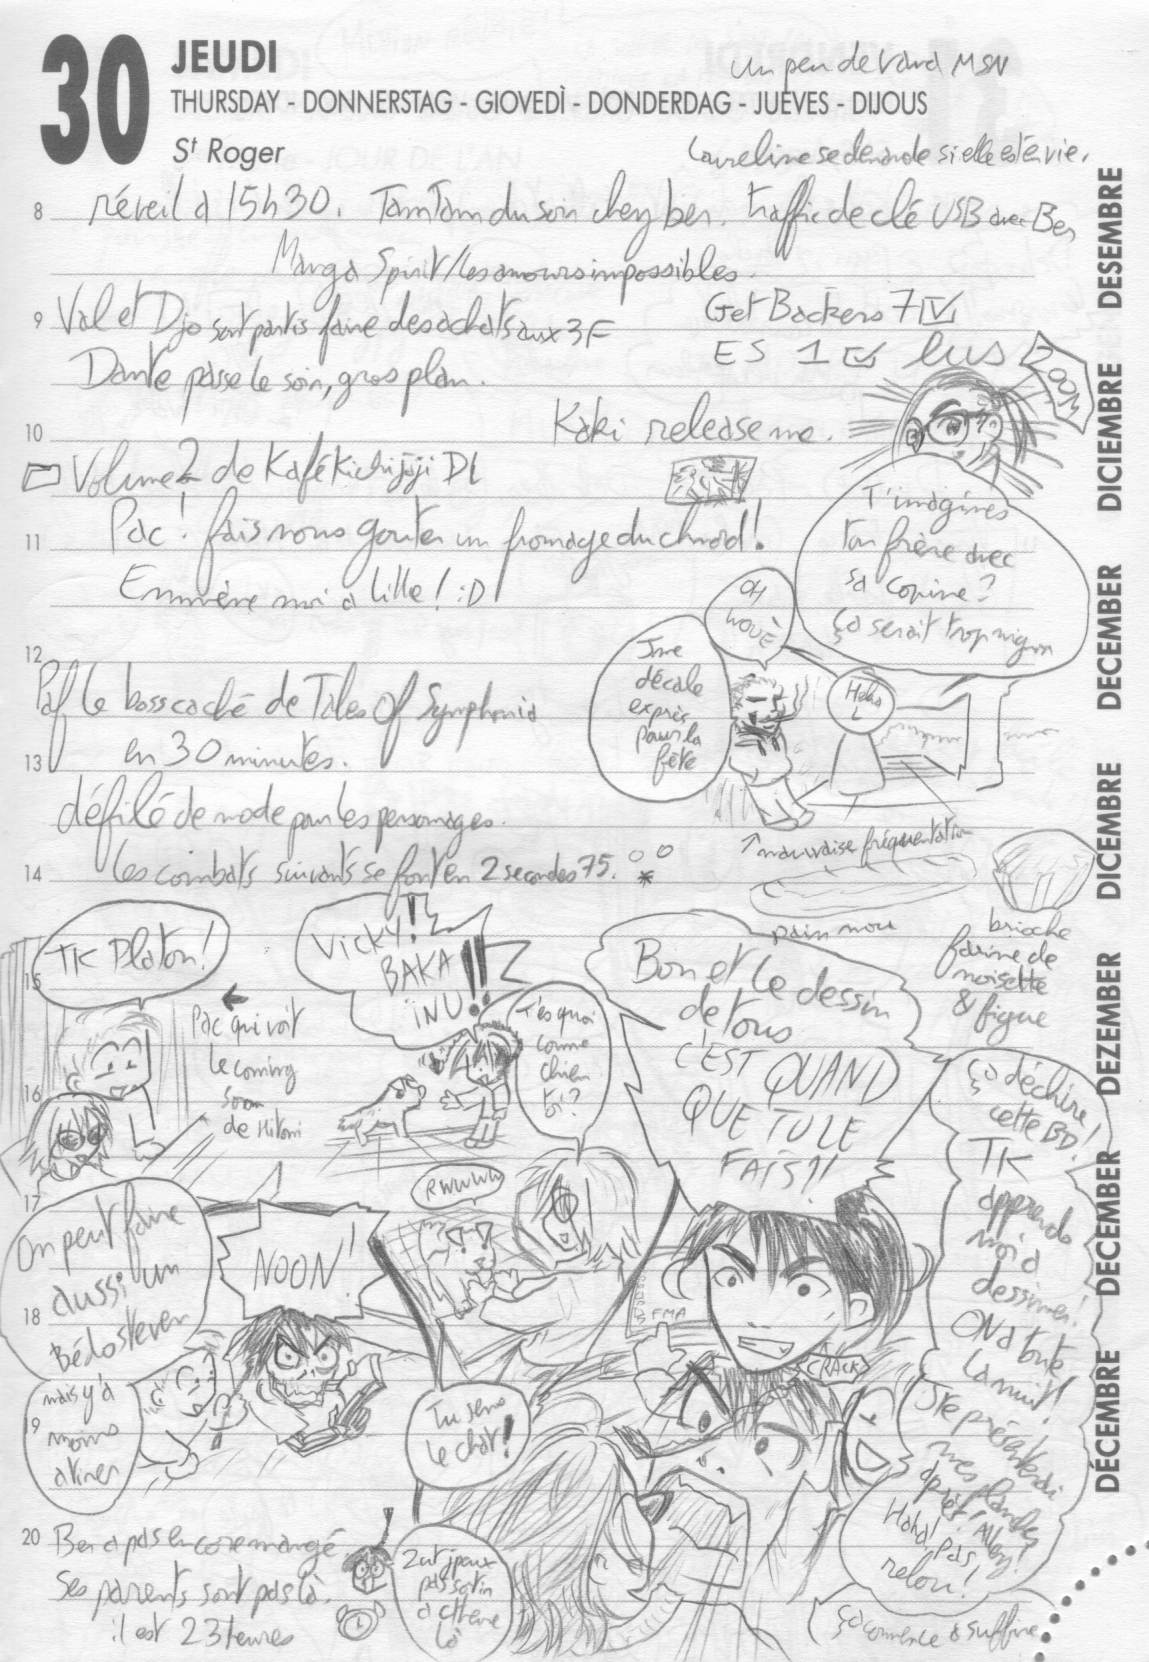 30
JEUDI
un peu de vava MSN
THURSDAY - DONNERSTAG - GIOVEDÌ - DONDERDAG - JUEVES - DIJOUS
St Roger
Laureline se demande si elle est en vie.
8 réveil à 15h30. TamTam du soir chez ben. traffic de clé USB avec Ben
Manga Spirit/les amours impossibles.
9 Val et Djo sont partis faire des achats aux 3F
Get Backers 7
ES 1 lus
ZOOM
Dante passe le soir, gros plan.
10
Kaki release me.
Volume 2 de Kafé Kichijoji DL
11 Pac! fais nous gouter un fromage du chnord!
Emmène moi à Lille! :D
T'imagines
ton frère avec
sa copine?
ça serait trop mignon
OH
WOUÈ
J'me
décale
exprès
pour la
fête
Haha
L
12
Paf le boss caché de Tales Of Symphonia
en 30 minutes.
13
défilé de mode pour les personnages.
↑ mauvaise fréquentation
14 les combats suivants se font en 2 secondes 75.
pain mou
brioche
farine de
noisette
& figue
TK Platon!
15
Pac qui voit
le coming
soon
de Hitomi
16
Vicky!!
BAKA
iNU!!
T'es quoi
comme
chien
toi?
Bon et le dessin
de tous
C'EST QUAND
QUE TU LE
FAIS?!
ça déchire!
cette BD!
TK
apprends
moi à
dessiner!
ON a toute
la nuit!
J'te présenterai
mes planches
après! Allez!
Haha! Pas
relou!
ça commence à suffire
17
On peut faire
aussi un
Bédosteven
mais y'a
moins
à tirer
NOON!
RWWWW
FMA
CRACK
18
19
Tu sens
le chat!
20 Ben a pas encore mangé
Ses parents sont pas là.
il est 23 heures
Zut j'peux
pas sortir
à cette heure
là
DÉCEMBRE DECEMBER DEZEMBER DICEMBRE DECEMBER DICIEMBRE DESEMBRE